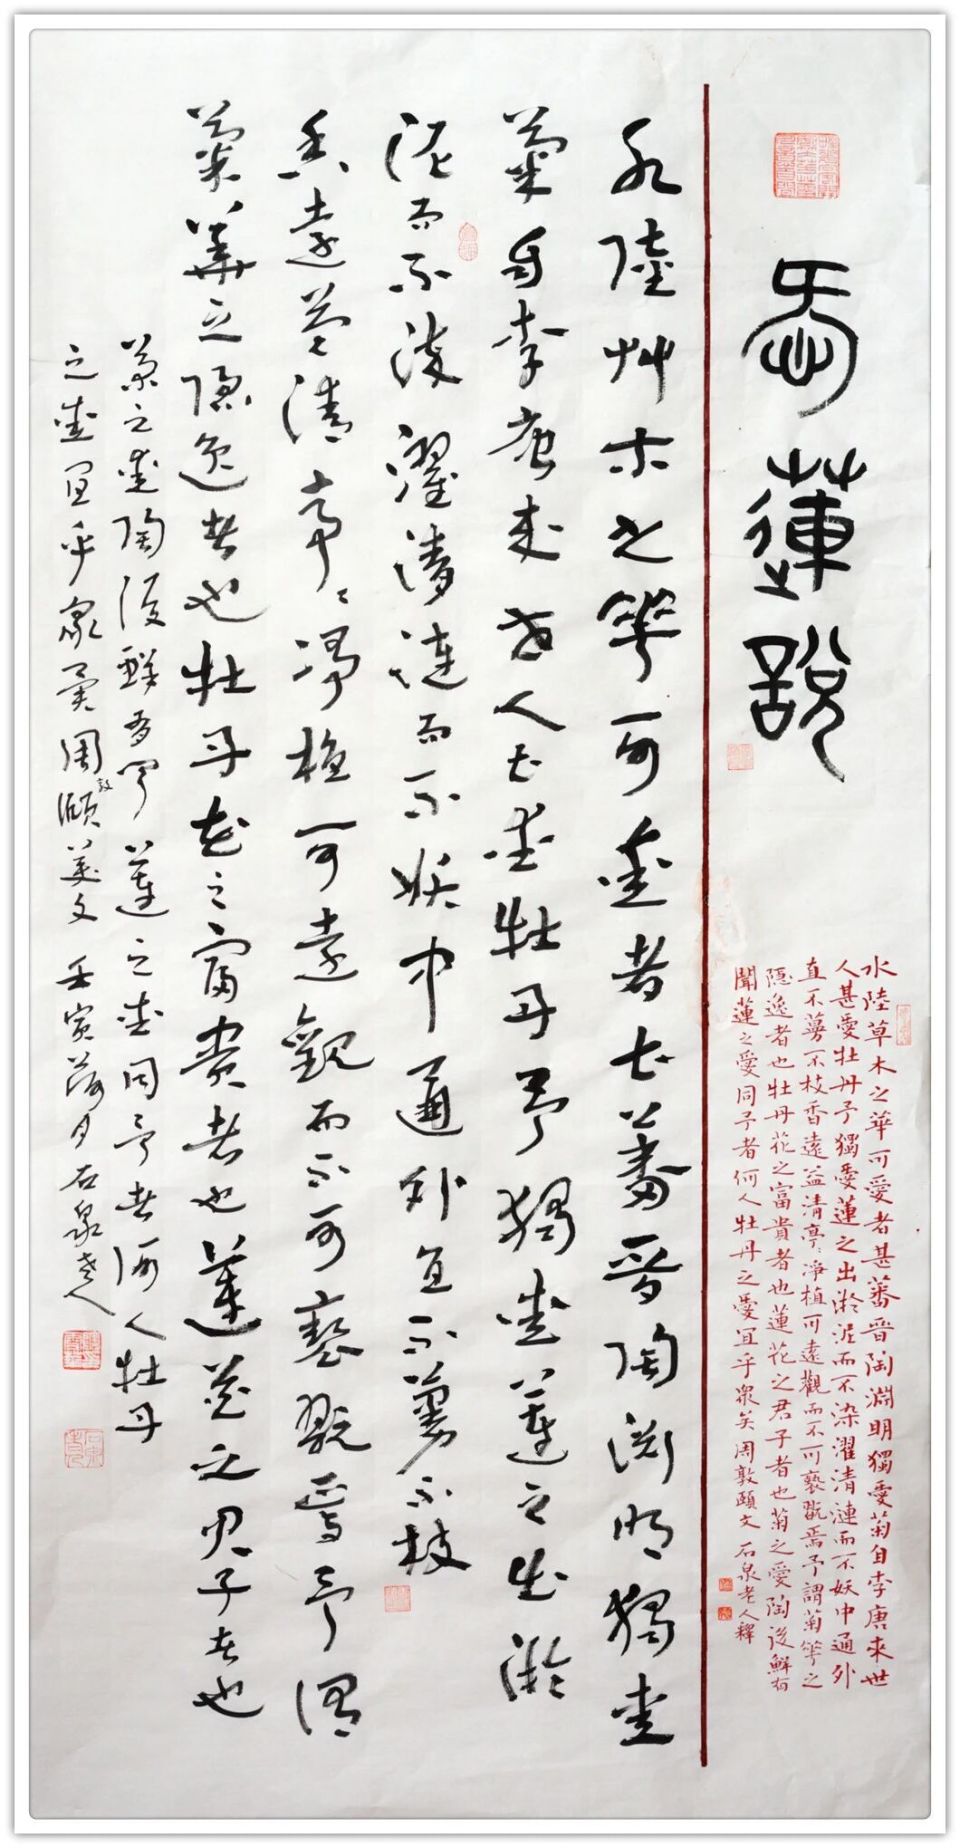 愛蓮說
水陸草木之華可愛者甚蕃晉陶淵明獨愛菊自李唐來世
人甚愛牡丹予獨愛蓮之出淤泥而不染濯清漣而不妖中通外
直不蔓不枝香遠益清亭〻淨植可遠觀而不可褻翫焉予謂菊華之
隱逸者也牡丹花之富貴者也蓮花之君子者也菊之愛陶後鮮有
聞蓮之愛同予者何人牡丹之愛宜乎眾矣周敦頤文石泉老人釋
水陸艸木之華可愛者甚蕃晉陶淵明獨愛
菊自李唐來世人甚愛牡丹予獨愛蓮之出淤
泥而不染濯清漣而不妖中通外直不蔓不枝
香遠益清亭〻淨植可遠觀而不可褻翫焉予謂
菊華之隱逸者也牡丹花之富貴者也蓮花之君子者也
菊之愛陶後鮮有聞蓮之愛同予者何人牡丹
之愛宜乎眾矣周敦頤美文壬寅荷月石泉老人